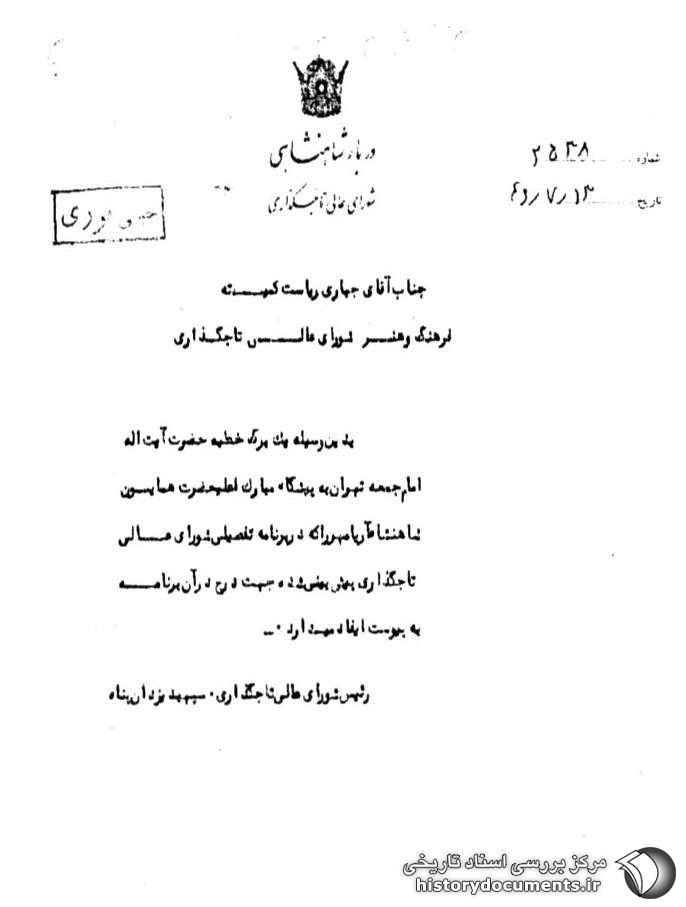 دربار شاهنشاهی
شورای عالی تاجگذاری
شماره ۲۵۳۸
تاریخ ۴۶٫۷٫۱۳
جناب آقای جهاری ریاست کمیته
فرهنگ و هنر شورای عالی تاجگذاری
بدین‌وسیله یک برگ خطبه حضرت آیت اله
امام جمعه تهران به پیشگاه مبارک اعلیحضرت همایون
شاهنشاه آریامهر را که در برنامه تفصیلی شورای عالی
تاجگذاری پیش بینی شده جهت درج در آن برنامه
به پیوست ایفاد میدارد ۰ــ
رئیس شورای عالی تاجگذاری ۰ سپهبد یزدان پناه
مرکز بررسی اسناد تاریخی
historydocuments.ir